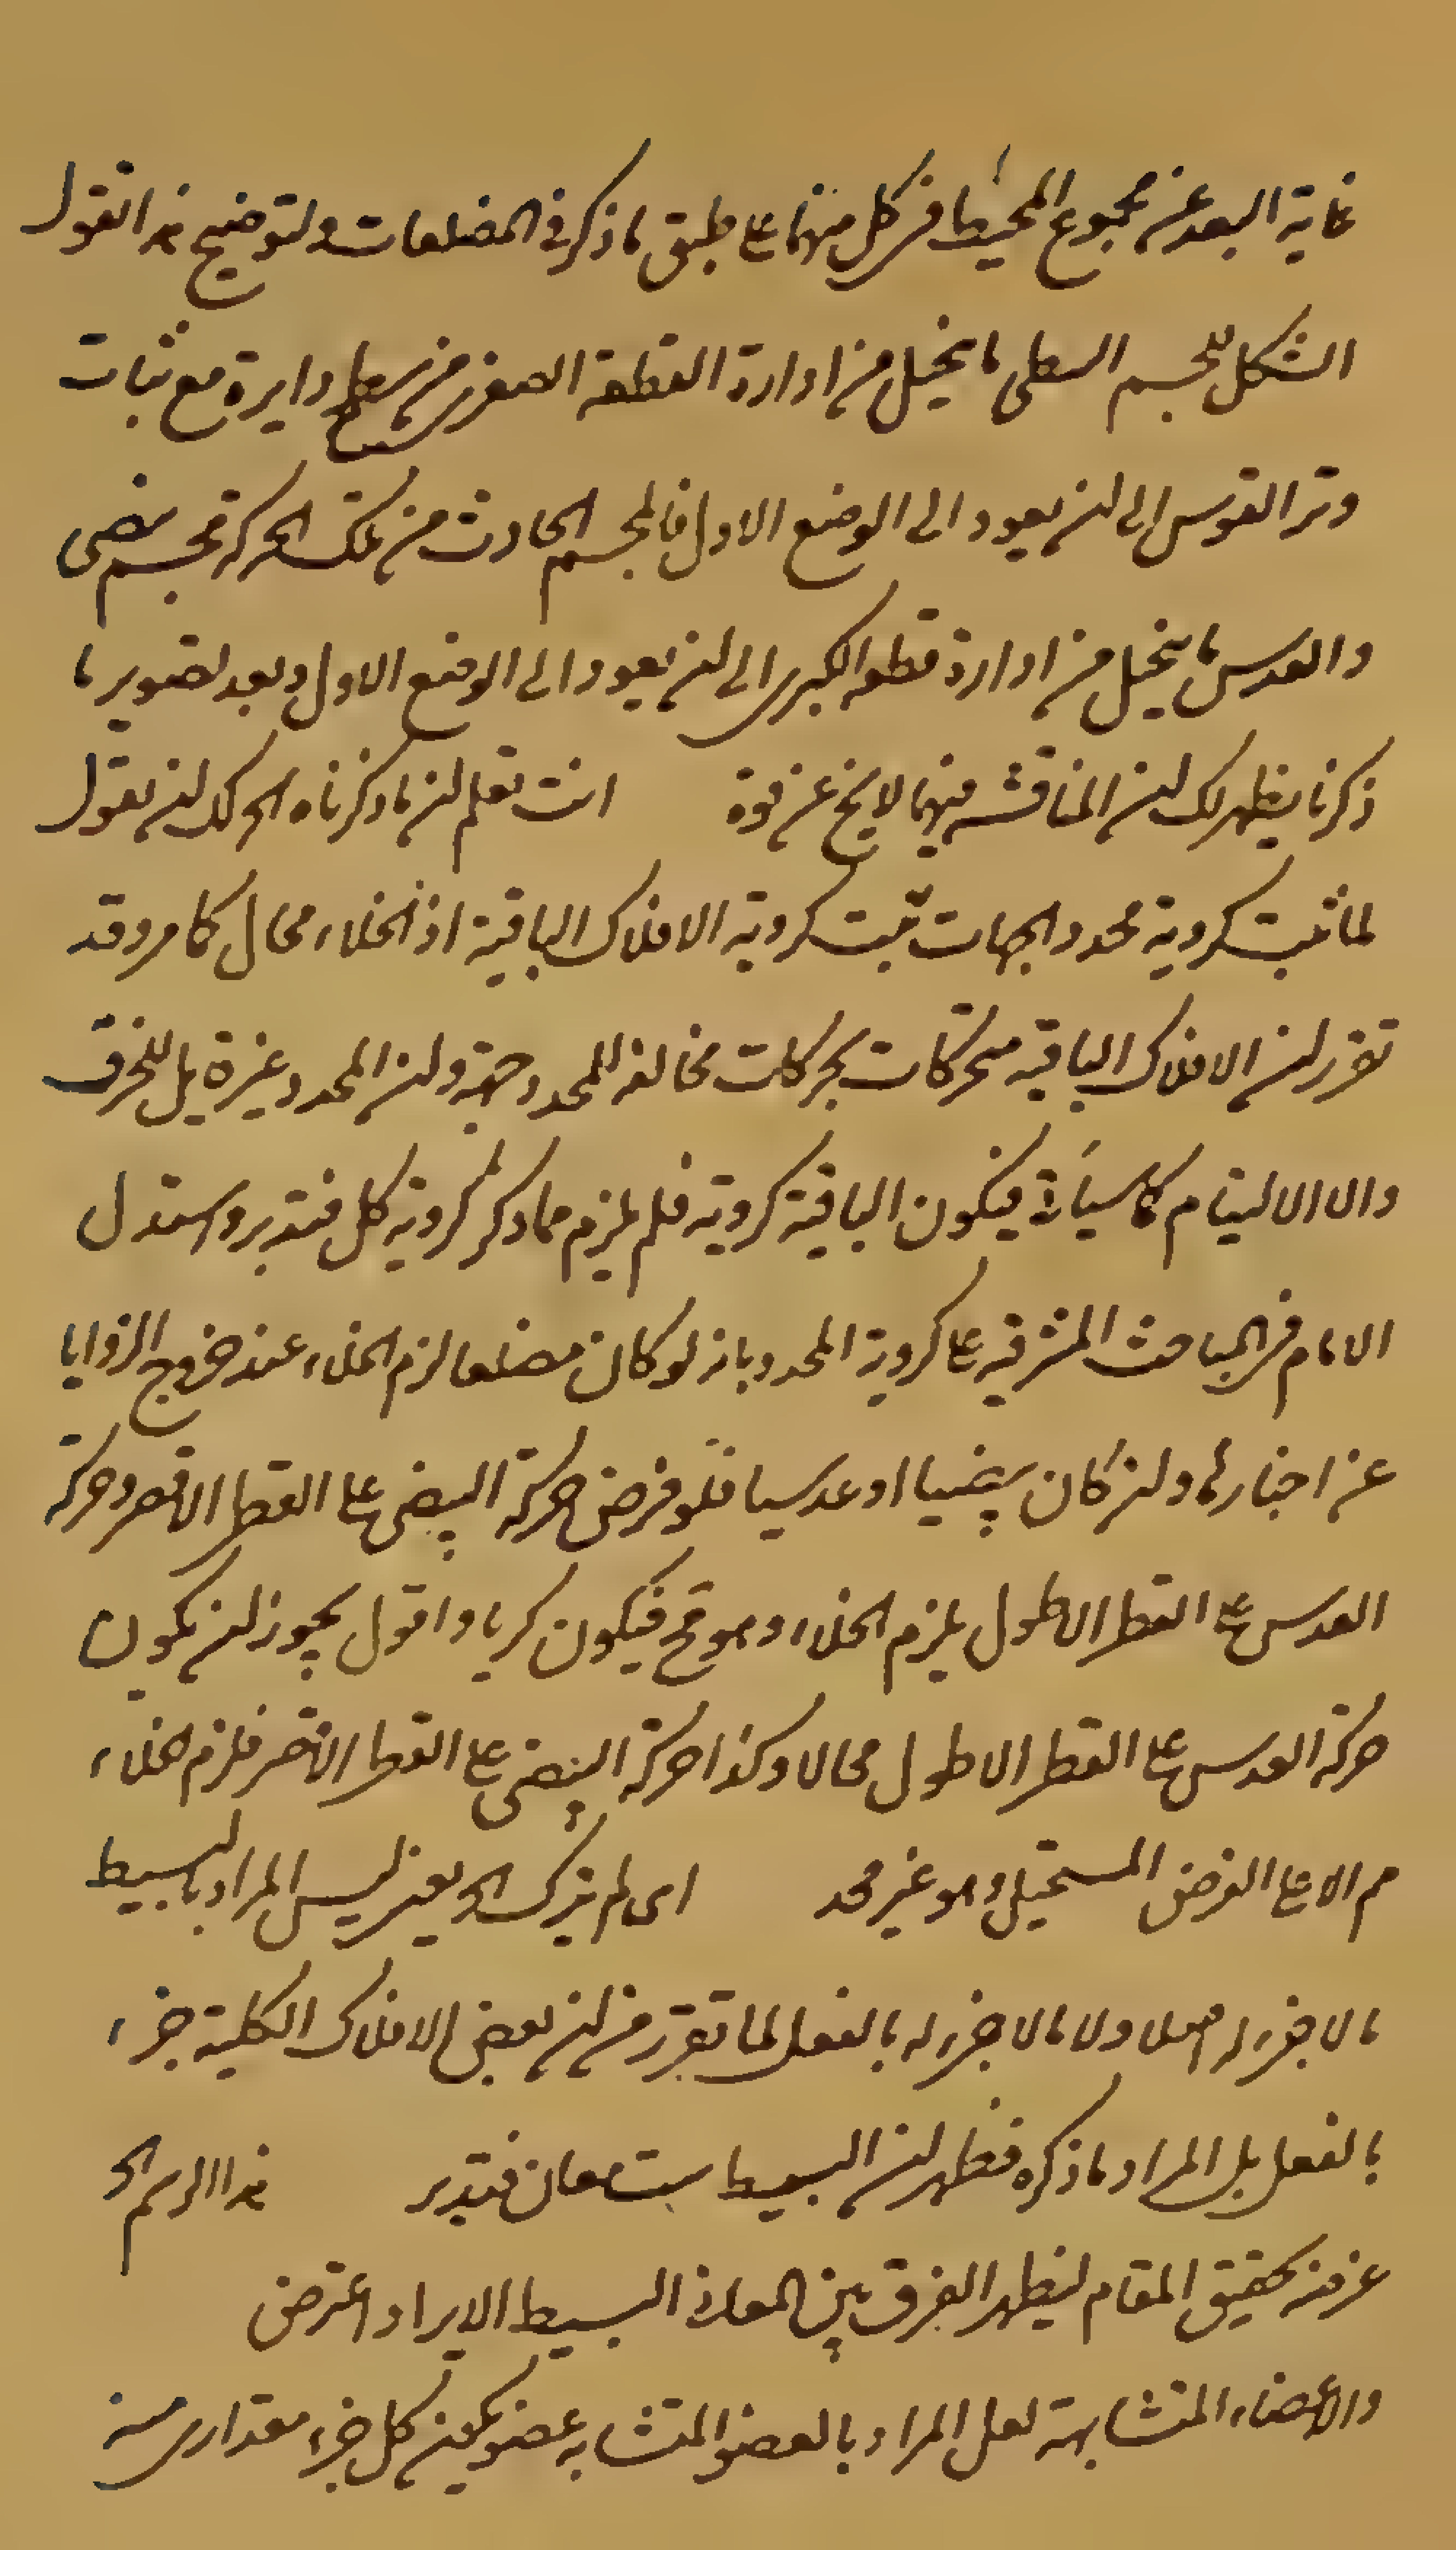 غاية البعد عن مجموع المحيط في كل منهما على طبق ما ذكر في المضلعات ولتوضيح هذا نقول
الشكل للجسم البيضى ما يتخيل من ادارة القطعة الصغرى من سطح دايرة مع ثبات
وتر القوس الى ان يعود الى الوضع الاول فالمجسم الحادث من تلك الحركة مجسم بيضى
والعدسى ما يتخيل من ادارة قطعه الكبرى الى ان يعود الى الوضع الاول وبعد تصوير ما
ذكرنا يظهر لك ان المناقشه فيهما لا يخ عن قوة انت تعلم ان ما ذكرناه الخ لك ان تقول
لما ثبت كروية محدد الجهات ثبت كروية الافلاك الباقية اذ الخلاء محال كما مر وقد
تقرر ان الافلاك الباقيه متحركات بحركات مخالفه للمحدد جهة وان المحدد غير قابل للخرق
والالتيام كما سيأتى فيكون الباقية كروية فلم يلزم مما ذكر كروية كل فتدبر واستدل
الامام في المباحث المشرقيه على كروية المحدد بانه لو كان مضلعا لزم الخلاء عند خروج الزوايا
عن احيازها وان كان بيضيا او عدسيا فلو فرض حركة البيضى على القطر الاقصر وحركة
العدسى على القطر الاطول يلزم الخلاء وهو مح فيكون كريا واقول يجوز ان يكون
حركة العدسى على القطر الاطول محالا وكذا حركة البيضى على القطر الاقصر فلزم الخلاء
م الا على الفرض المستحيل وهو غير محد اى لم يترك الخ يعنى ليس المراد بالبسيط
ما لا جزء له اصلا ولا ما لا جزء له بالفعل لما تقرر من ان بعض الافلاك الكلية جزء
بالفعل بل المراد ما ذكره فظهر ان البسيط ست معان فتدبر هذا الرسم الخ
غرضه تحقيق المقام ليظهر الفرق بين المعانى البسيط لا ايراد اعتراض
والاعضاء المتشابهة لعل المراد بالعضو المتشابه عضو يكون كل جزء مقدارى منه